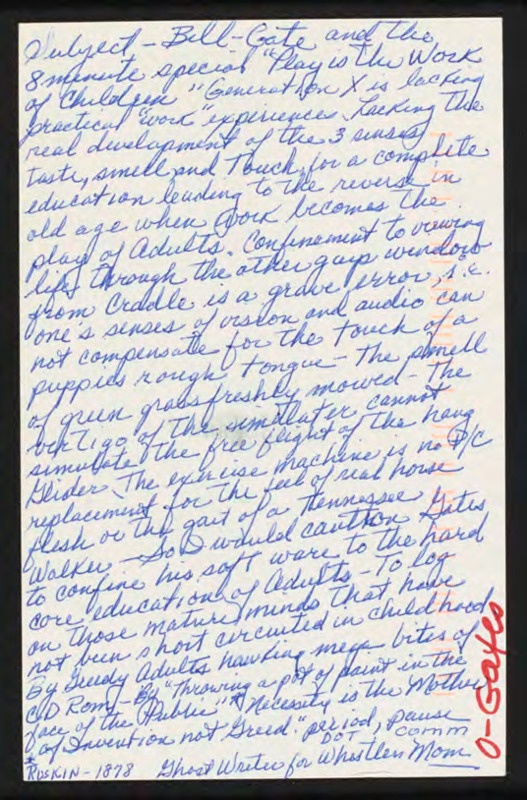 Subject - Bill-Gate and the
8 minute special "Play is the Work
of Children" "Generation X is lacking
practical "work" experiences. Lacking the
real development of the 3 senses
taste, smell and Touch, for a complete
education leading to the reverse in
old age when Work becomes the
play of Adults. Confinement to viewing
life through the other guys windows
from Cradle is a grave error, i.e.
one's senses of vision and audio can
not compensate for the touch of a
puppies rough tongue - The smell
of green grass freshly mowed - The
vertigo of the simulater cannot
simulate the free flight of the hang
Glider. The exercise machine is no P/C
replacement for the feel of real horse
flesh or the gait of a Tennessee
Walker - So I would caution Gates
to confine his soft ware to the hard
core education of Adults - To log
on those mature minds that have
not been short circuited in childhood
By Greedy Adults hawking mega bites of
CD Roms - By "Throwing a pot of paint in the
face of the Public"* "Necessity is the Mother
of Invention not Greed." period, pause
DOT comm
*Ruskin - 1878 Ghost Writer for Whistlers Mom
O-Gates